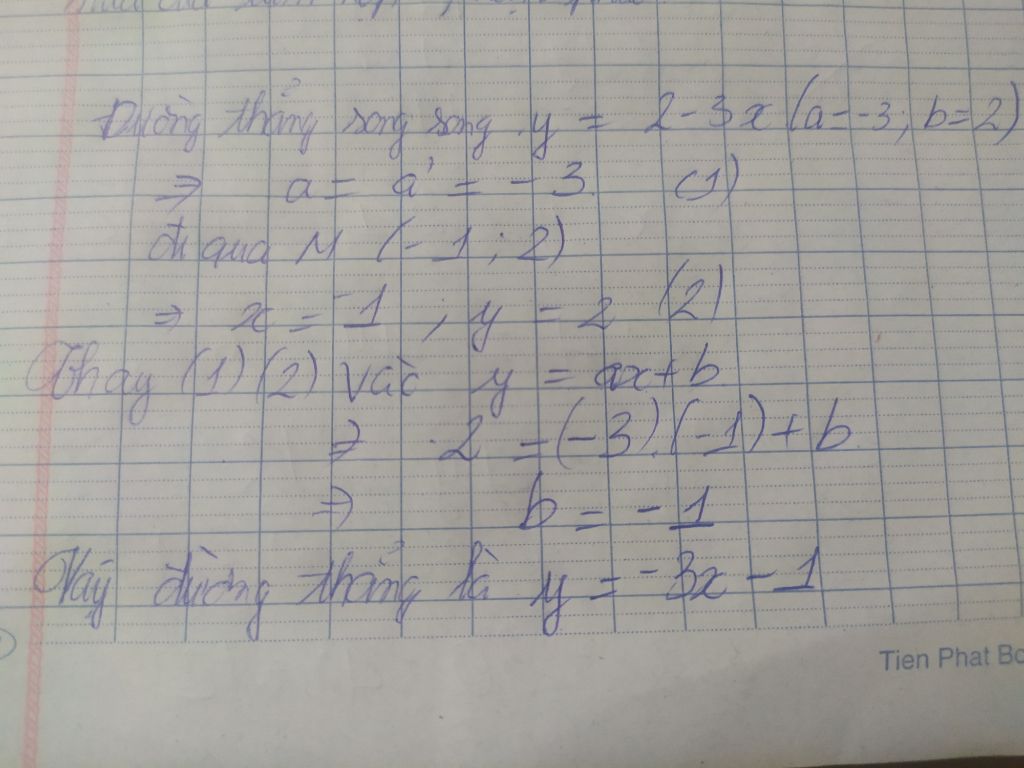 Đường thẳng song song y = 2 - 3x (a = -3; b = 2)
⇒ a = a' = -3 (1)
đi qua M (-1; 2)
⇒ x = -1; y = 2 (2)
Thay (1) (2) vào y = ax + b
⇒ 2 = (-3).(-1) + b
⇒ b = -1
Vậy đường thẳng là y = -3x - 1
Tien Phat